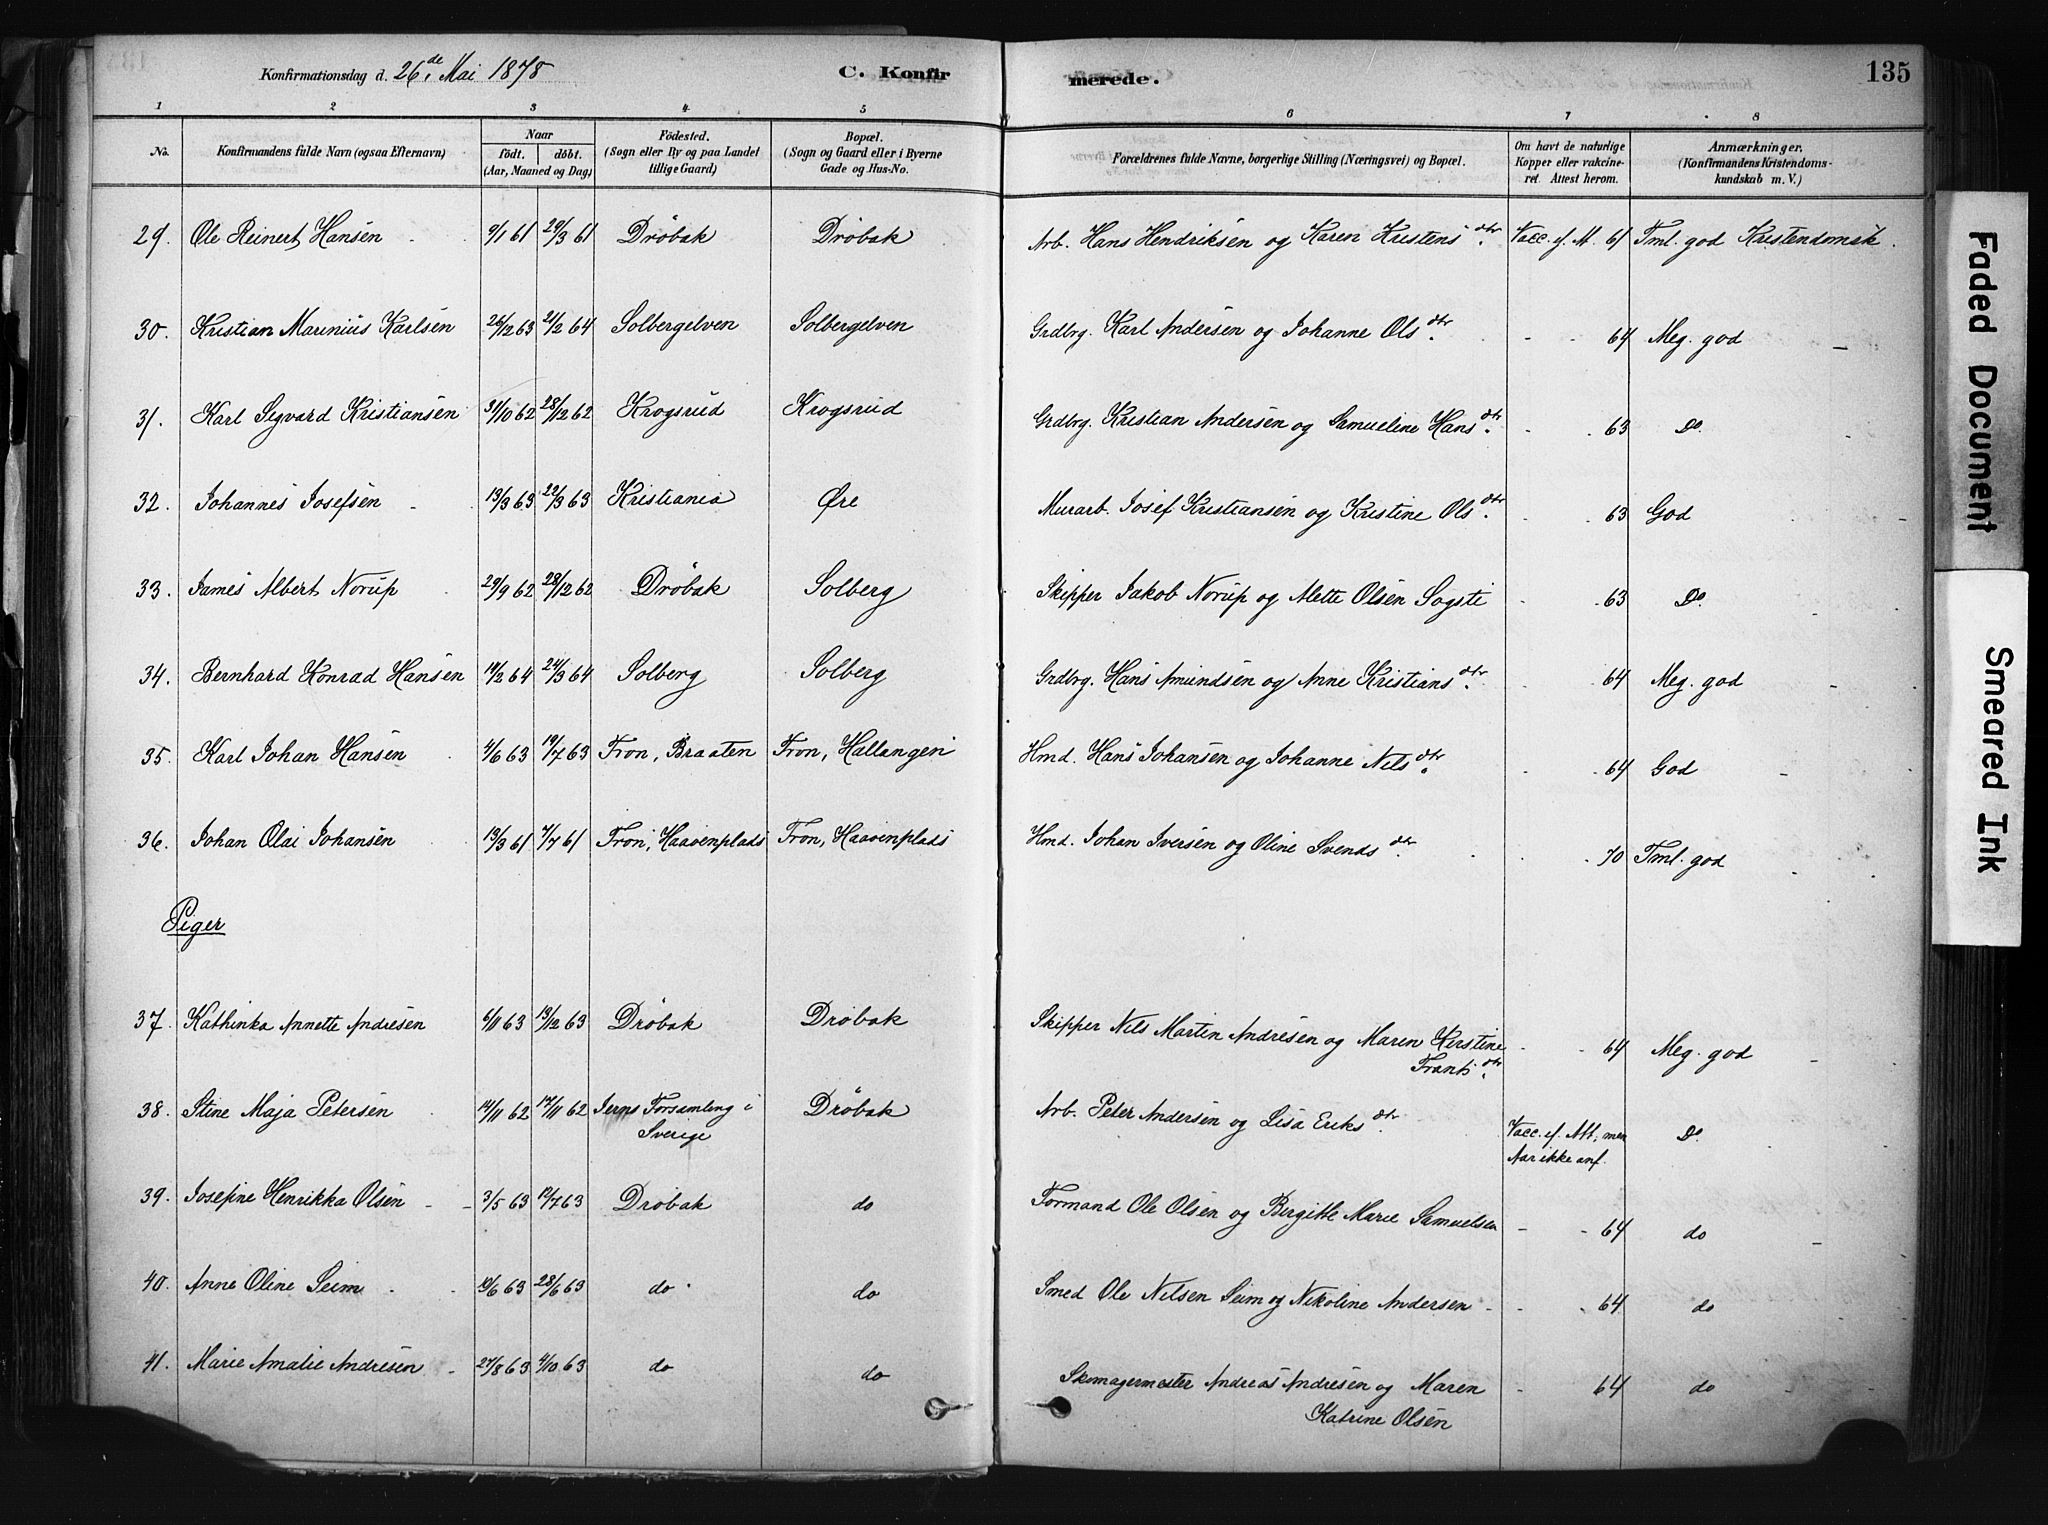 Konfirmationsdag d. 26de Mai 1878 C. Konfirmerede. 135
1 2 3 4 5 6 7 8
No. Konfirmandens fulde Navn (ogsaa Efternavn) Naar født. døbt. (Aar, Maaned og Dag) Födested. (Sogn eller By og paa Landet tillige Gaard) Bopæl. (Sogn og Gaard eller i Byerne Gade og Hus-No. Forældrenes fulde Navne, borgerlige Stilling (Næringsvei) og Bopæl. Om havt de naturlige Kopper eller vakcineret. Attest herom. Anmærkninger. (Konfirmandens Kristendomskundskab m. V.)
29. Ole Reinert Hansen 9/1 61 29/3 61 Drøbak Drøbak Arb. Hans Hendriksen og Karen Kristensdtr. Vacc. ef. A. 61 Tml. god Kristendomsk.
30. Kristian Marinius Karlsen 26/12 63 21/2 64 Solbergelven Solbergelven Grdbrg. Karl Andersen og Johanne Olsdtr. - - 64 Meg. god
31. Karl Sigvard Kristiansen 31/10 62 28/12 62 Krogsrud Krogsrud Grdbrg. Kristian Andersen og Samueline Hansdtr. - - 63 Do.
32. Johannes Josefsen 13/3 63 22/3 63 Kristiania Øre Murarb. Josef Kristiansen og Kristine Olsdtr. - - 63 God
33. James Albert Norup 29/9 62 28/12 62 Drøbak Solberg Skipper Jakob Norup og Alette Olsen Sogsti - - 63 Do.
34. Bernhard Konrad Hansen 19/2 64 24/3 64 Solberg Solberg Grdbrg. Hans Amundsen og Anne Kristiansdtr. - - 64 Meg. god
35. Karl Johan Hansen 4/6 63 19/7 63 Fron, Braaten Fron, Hallangen Hmd. Hans Johansen og Johanne Nilsdtr. - - 64 God
36. Johan Olai Johansen 13/3 61 7/7 61 Fron, Haavenplads Fron, Haavenplads Hmd. Johan Iversen og Oline Svendsdtr. - - 70 Tml. god
Piger
37. Kathinka Annette Andresen 6/11 63 13/12 63 Drøbak Drøbak Skipper Nils Martin Andresen og Maren Kerstine - - 64 Meg. god
Frantsdtr.
38. Stine Maja Petersen 14/11 62 17/11 62 Jerns Forsamling i Drøbak Arb. Peter Andersen og Lisa Eriksdtr. Vacc. ef. Att., men Do.
Sverige Aar ikke anf.
39. Josefine Henrikka Olsen 3/5 63 12/7 63 Drøbak do Formand Ole Olsen og Birgitte Marie Samuelsen - - 64 do
40. Anne Oline Seim 10/6 63 28/6 63 do do Smed Ole Nilsen Seim og Nikoline Andersen - - 64 do
41. Marie Amalie Andresen 27/8 63 4/10 63 do do Skomagermester Andreas Andresen og Maren - 64 do
Katrine Olsen
Faded Document
Smeared Ink